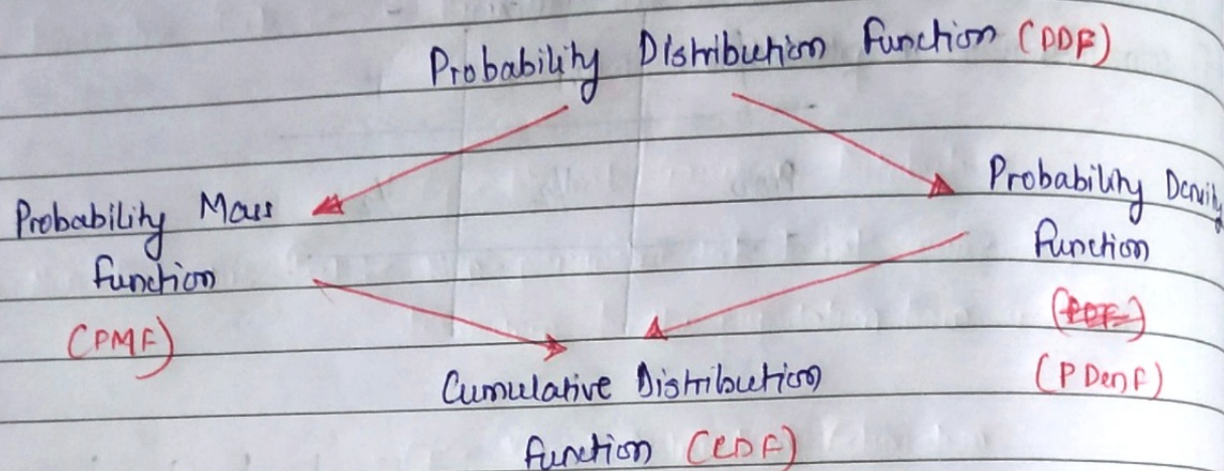 Probability Distribution Function (PDF)
Probability Mass
Function
(PMF)
Probability Density
Function
(PDF)
(PDenF)
Cumulative Distribution
Function (CDF)